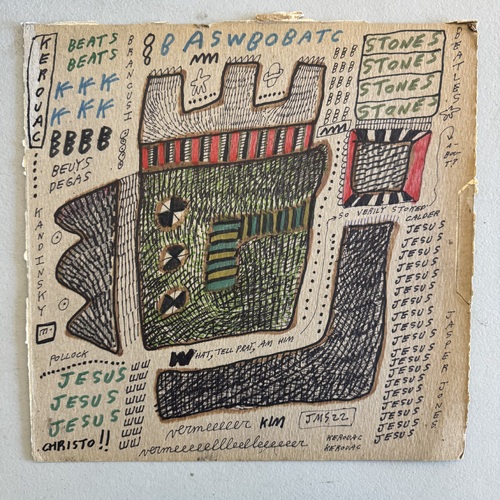 KEROUAC
BEATS
BEATS
K K K
K K K
BBBB
BEUYS
DEGAS
BRANCUSI
8 B ASWBOBATC
STONES
STONES
STONES
STONES
BEATLES
KANDINSKY
m
POLLOCK
JESUS
JESUS
JESUS
CHRISTO!!
SO VERILY STONED
CALDER
JESUS
JESUS
JESUS
JESUS
JESUS
JESUS
JESUS
JESUS
JESUS
JESUS
JESUS
JESUS
JESUS
JESUS
JESUS
JESUS
JASPER JONES
WHAT, TELL PRAT, AM HIM
vermeeeeer KIM
JMS22
KEROUAC
KEROUAC